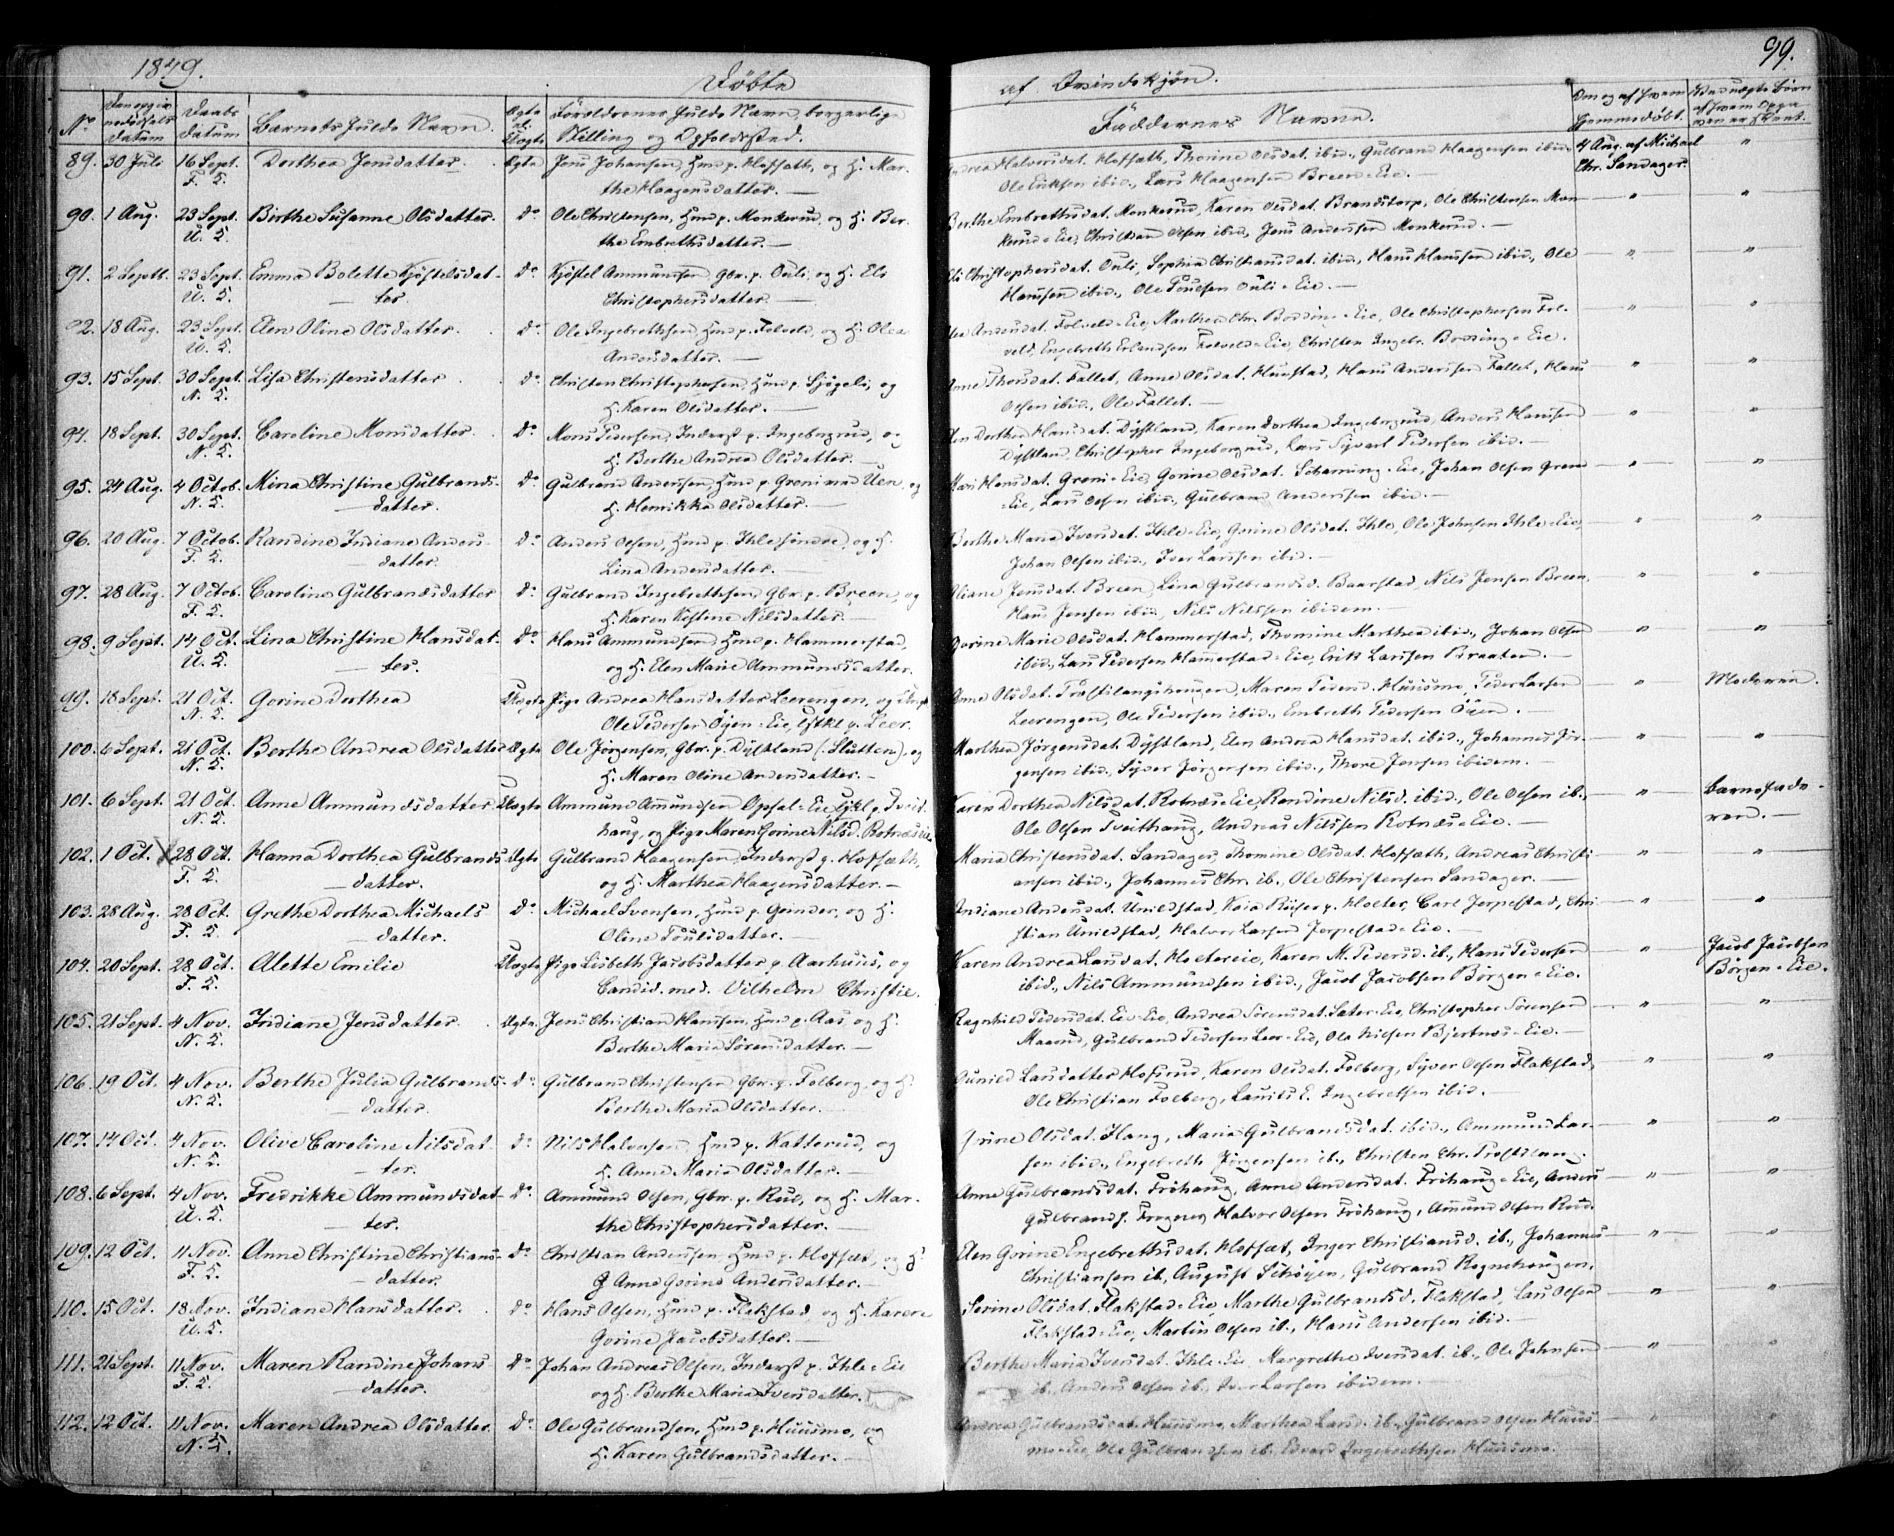 1849.
Døbte
af Qvindekjøn.
99.
No
Barnets fulde Navn.
Forældrenes fulde Navn, borgerlige
Stilling og Opholdssted.
Faddernes Navne.
89. 30 Juli 16 Sept. Dorthea Jensdatter Ægte Jens Johansen, Hmd p. Hoffath, og H. Mar-
F. K. the Haagensdatter.
Halvorsdat. Hoffath, Thorine Olsdat. ibid., Gulbrand Haagensen ibid. 4 Aug. af Michael "
Ole Eriksen ibid., Lars Haagensen Breen-Eie. Chr. Sandager.
90. 1 Aug. 23 Sept. Birthe Susanne Olsdatter. Do Ole Christensen, Hmd p. Monkerud, og H. Ber-
U. K. the Embrethsdatter.
Berthe Embrethsdat. Monkerud, Karen Olsdat. Brandstorp, Ole Christensen Mon- " "
kerud-Eie, Christian Olsen ibid., Jens Anderssen Monkerud.
91. 2 Septt. 23 Sept. Emma Bolette Kjøstelsdat- Do Kjøstel Ammundsen, Gbr. p. Ouli, og H. Eli
U. K. ter. Christophersdatter.
Eli Christophersdat. Ouli, Sophia Christiansdat. ibid., Hans Hanssen ibid., Ole " "
Hanssen ibid., Ole Poulsen Ouli-Eie.
92. 18 Aug. 23 Sept. Elen Oline Olsdatter. Do Ole Ingebrethsen, Hmd p. Folveld, og H. Olea
U. K. Andersdatter.
Andersdat. Folveld-Eie, Marthea Chr. Eie, Ole Christophersen Fol- " "
veld, Engebreth Erlandsen Folveld-Eie, Christen Ingebr. Eie.
93. 15 Sept. 30 Sept. Lisa Christensdatter Do Christen Christophersen, Hmd p. Sjøgeli, og
N. K. H. Karen Olsdatter.
Anne Thorsdat. Fallet, Anne Olsdat. Hunstad, Hans Anderssen Fallet, Hans " "
Olsen ibid., Ole Fallet.
94. 18 Sept. 30 Sept. Caroline Monsdatter Do Mons Pedersen, Inderst p. Ingeborgrud, og
N. K. H. Berthe Andrea Olsdatter.
Dorthea Hansdat. Dystland, Karen Dorthea Ingeborgrud, Anders Hanssen " "
Dystland, Christopher Ingeborgrud, Lars Syvert Pedersen ibid.
95. 24 Aug. 4 Octob. Mina Christine Gulbrands- Do Gulbrand Anderssen, Hmd p. Greni Uen, og
N. K. datter. H. Henrikka Olsdatter.
Mari Hansdat. Greni-Eie, Gorine Olsdat. Scharning-Eie, Johan Olsen Greni " "
-Eie, Lars Olsen ibid., Gulbrand Anderssen ibid.
96. 20 Aug. 7 Octob. Randine Indiane Anders- Do Anders Olsen, Hmd p. Ihle søndre, og H.
F. K. datter. Lina Andersdatter.
Berthe Maria Iversdat. Ihle-Eie, Gorine Olsdat. Ihle, Ole Johnsen Ihle-Eie, " "
Johan Olsen ibid., Iver Larssen ibid.
97. 28 Aug. 7 Octob. Caroline Gulbrandsdatter Do Gulbrand Ingebrethsen, Gbr. p. Breen, og
F. K. H. Karen Kistine Nilsdatter.
Jensdat. Breen, Lina Gulbrandsd. Baarstad, Nils Jensen Breen, " "
Hans Jensen ibid., Nils Nilssen ibidem.
98. 9 Sept. 14 Oct. Lina Christine Hansdat- Do Hans Ammundsen, Hmd p. Hammerstad,
U. K. ter. og H. Elen Marie Ammundsdatter.
Dorine Marie Olsdat. Hammerstad, Thomine Marthea ibid., Johan Olsen " "
ibid., Lars Pedersen Hamerstad-Eie, Erik Larssen Braaten.
99. 18 Sept. 21 Oct. Gorine Dorthea Uægte Pige Andrea Hansdatter Leerengen, og
N. K. Ole Pedersen Öyen-Eie, p. Leer.
Anne Olsdat. Maren Pedersd. Huusmo, Peder Larsen " Moderen.
Leerengen, Ole Pedersen ibid., Embreth Pedersen Öien.
100. 6 Sept. 21 Oct. Berthe Andrea Olsdatter Ægte Ole Jörgensen, Gbr. p. Dystland (:Slutten), og
N. K. H. Maren Oline Andersdatter.
Marthea Jørgensdat. Dystland, Elen Andrea Hansdat. ibid., Johannes Jör- " "
gensen ibid., Syver Jörgensen ibid., Thore Jensen ibidem.
101. 6 Sept. 21 Oct. Anne Ammundsdatter Uægte Ammund Amundsen Opsal-Eie, p. Tveit-
N. K. haug, og Pige Maren Gorine Nilsd. Rotnæseie
Karen Dorthea Nilsdat. Rotnæs-Eie, Randine Nilsd. ibid., Ole Olsen ib., " Barnefade-
Ole Olsen Tveithaug, Andreas Nilssen Rotnæs-Eie. ren.
102. 1 Oct. X 28 Oct. Hanna Dorthea Gulbrands- Ægte Gulbrand Haagensen, Inderst p. Hoffath,
F. K. datter. og H. Marthea Haagensdatter.
Maria Christensdat. Sandager, Thomine Olsdat. Hoffath, Andreas Christi- " "
ansen ibid., Johannes Chr. ib., Ole Christensen Sandager.
103. 28 Aug. 28 Oct. Grethe Dorthea Michaels Do Michael Svensen, Hmd p. Grinder, og H.
F. K. datter. Oline Poulsdatter.
Indiane Andersdat. Unildstad, Kaia Riiser p. Holter, Carl Jerpestad, Chri- " "
stian Unildstad, Halvor Larsen Jerpestad-Eie.
104. 20 Sept. 28 Oct. Alette Emilie Uægte Pige Lisbeth Jacobsdatter p. Aarhuus, og
F. K. Candid. med. Vilhelm Christie.
Karen Andrea Larsdat. Holtereie, Karen M. Pedersd. ib., Hans Pedersen " Jacob Jacobsen
ibid., Nils Ammundsen ibid., Jacob Jacobsen Börgen-Eie. Börgen-Eie.
105. 21 Sept. 4 Nov. Indiane Jensdatter Ægte Jens Christian Hanssen, Hmd p. Aas, og H.
N. K. Berthe Maria Sörensdatter.
Ragnhild Pedersdat. Eie, Andrea Sörensdat. Sæter-Eie, Christopher Sörensen " "
Maarud, Gulbrand Pedersen Leer-Eie, Ole Nielsen Bjertnæs-Eie.
106. 19 Oct. 4 Nov. Berthe Julia Gulbrands- Do Gulbrand Christensen, Gbr. p. Folberg, og H.
N. K. datter. Berthe Maria Olsdatter.
Gunild Larsdatter Hofsrud, Karen Olsdat. Folberg, Syver Olsen Flakstad, " "
Ole Christian Folberg, Lauris E. Ingebretsen ibid.
107. 14 Oct. 4 Nov. Olive Caroline Nilsdat- Do Nils Halvorsen, Hmd p. Katterud, og
N. K. ter. H. Anne Maria Olsdatter.
Gorine Olsdat. Haug, Maria Gulbrandsdat. ibid., Ammund Lar- " "
sen ibid., Engebreth Jörgensen ib., Christen Chr.
108. 6 Sept. 4 Nov. Fredrikke Ammundsdat- Do Ammund Olsen, Gbr. p. Rud, og H. Mar-
U. K. ter. the Christophersdatter.
Anne Gulbrandsdat. Frihaug, Anne Andersdat. Frihaug-Eie, Anders " "
Gulbrands. Halvor Olsen Frihaug, Amund Olsen Rud.
109. 12 Oct. 11 Nov. Anne Christine Christians- Do Christian Andersen, Hmd p. Hoffæt, og H.
F. K. datter. Anne Gorine Andersdatter.
Elen Gorine Engebrethsdat. Hoffæt, Inger Christiansd. ib., Johannes " "
Christiansen ib., August Schöyen, Gulbrand Rognehougen.
110. 15 Oct. 18 Nov. Indiane Hansdatter. Do Hans Olsen, Hmd p. Flakstad, og H. Karen
U. K. Gorine Jacobsdatter.
Serine Olsdat. Flakstad-Eie, Marthe Gulbrandsd. Flakstad, Lars Olsen " "
Flakstad-Eie, Martin Olsen ib., Hans Andersen ibid.
111. 21 Sept. 11 Nov. Maren Randine Johans- Do Johan Andreas Olsen, Inderst p. Ihle-Eie
F. K. datter. og H. Berthe Maria Iversdatter.
Berthe Maria Iversdat. Ihle-Eie, Margrethe Iversdat. ib., Ole Johnsen " "
ib., Anders Olsen ib., Iver Larsen ibidem.
112. 12 Oct. 11 Nov. Maren Andrea Olsdatter. Do Ole Gulbrandsen, Hmd p. Huusmo, og
N. K. H. Karen Gulbrandsdatter.
Andrea Gulbrandsdat. Huusmo, Marthea Larsd. ib., Gulbrand Olsen Huus- " "
mo-Eie, Ole Gulbrandsen ib., Edvard Ingebrethsen Huusmo.